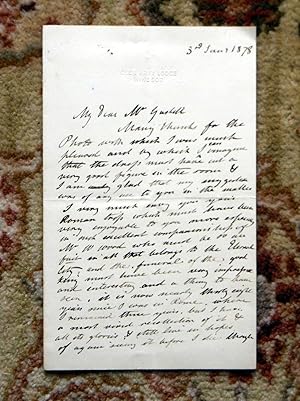 3rd Jany 1878
My Dear Mr
Many thanks for the
Photo with which I was much
pleased and by which I imagine
that the must have cut a
very good figure in the room &
I am glad that my suggestion
was of any use to you in the matter
I very much envy you your
Roman trip which must have been
very enjoyable to you more especially
in such excellent companionship of
Mr W Wood who must be so au
fait in all that belongs to the Eternal
City and the funeral of the good
King must have been very impressive
and interesting and a thing to have
seen, it is now nearly thirty eight
years since I was in Rome, where
I remained three years, but I have
a most vivid recollection of it &
all its glories & still live in hopes
of again seeing it before I die though